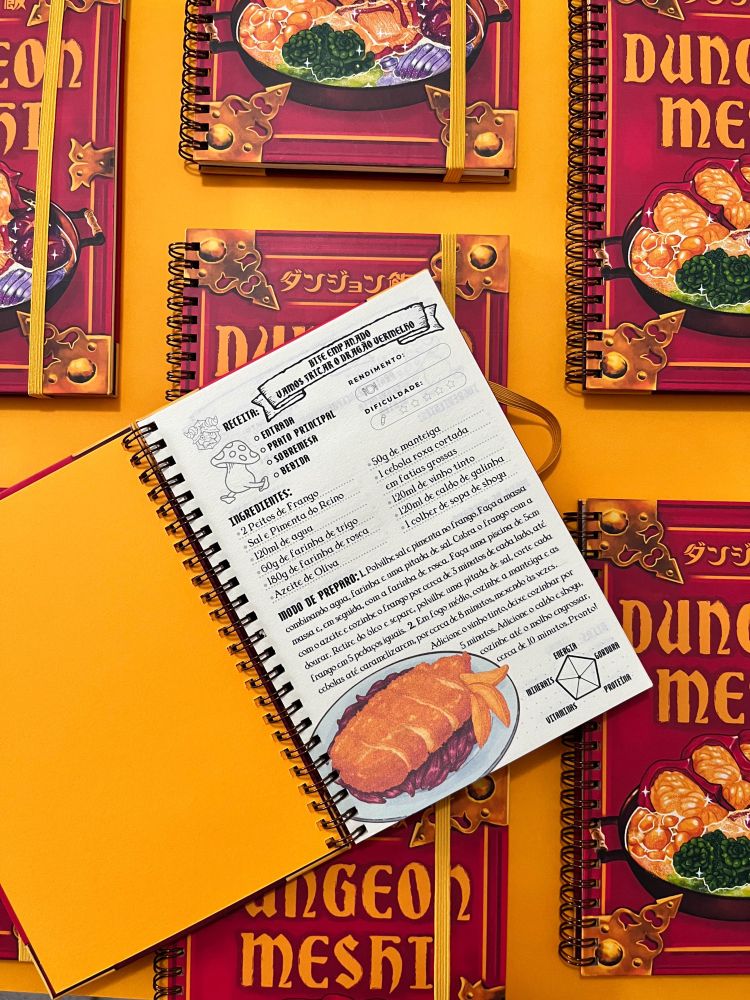 飯
EON
HI
DUNG
ME
ダンジョン飯
DUN
BIFE EMPANADO
VAMOS FRITAR O DRAGÃO VERMELHO
RECEITA:
ENTRADA
PRATO PRINCIPAL
SOBREMESA
BEBIDA
RENDIMENTO:
DIFICULDADE:
INGREDIENTES:
• 2 Peitos de Frango
• Sal e Pimenta do Reino
• 120ml de agua
• 60g de farinha de trigo
• 180g de farinha de rosca
• Azeite de Oliva
• 50g de manteiga
• 1 cebola roxa cortada
em fatias grossas
• 120ml de vinho tinto
• 120ml de caldo de galinha
• 1 colher de sopa de shoyu
MODO DE PREPARO: 1. Polvilhe sal e pimenta no frango. Faça a massa
combinando agua, farinha e uma pitada de sal. Cubra o frango com a
massa e, em seguida, com a farinha de rosca. Faça uma piscina de 5cm
com o azeite e cozinhe o frango por cerca de 3 minutos de cada lado, até
dourar. Retire do óleo e separe, polvilhe uma pitada de sal, corte cada
frango em 5 pedaços iguais. 2. Em fogo médio, cozinhe a manteiga e as
cebolas até caramelizarem, por cerca de 8 minutos, mexendo às vezes.
Adicione o vinho tinto, deixe cozinhar por
5 minutos. Adicione o caldo e shoyu,
cozinhe até o molho engrossar,
cerca de 10 minutos. Pronto!
ENERGIA
GORDURA
PROTEÍNA
VITAMINAS
MINERAIS
ダンジ
DUNG
MES
DUNGEON
MESHI